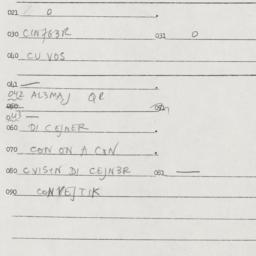 021 0
030 CIN7G3R 031 0
040 CU VOS
041 —
042 AL3MAJ QR
043 —
060 DI CEJNER
070 CON ON A CON
080 CVISIN DI CEJN3R 081 —
090 CONVEJTIK